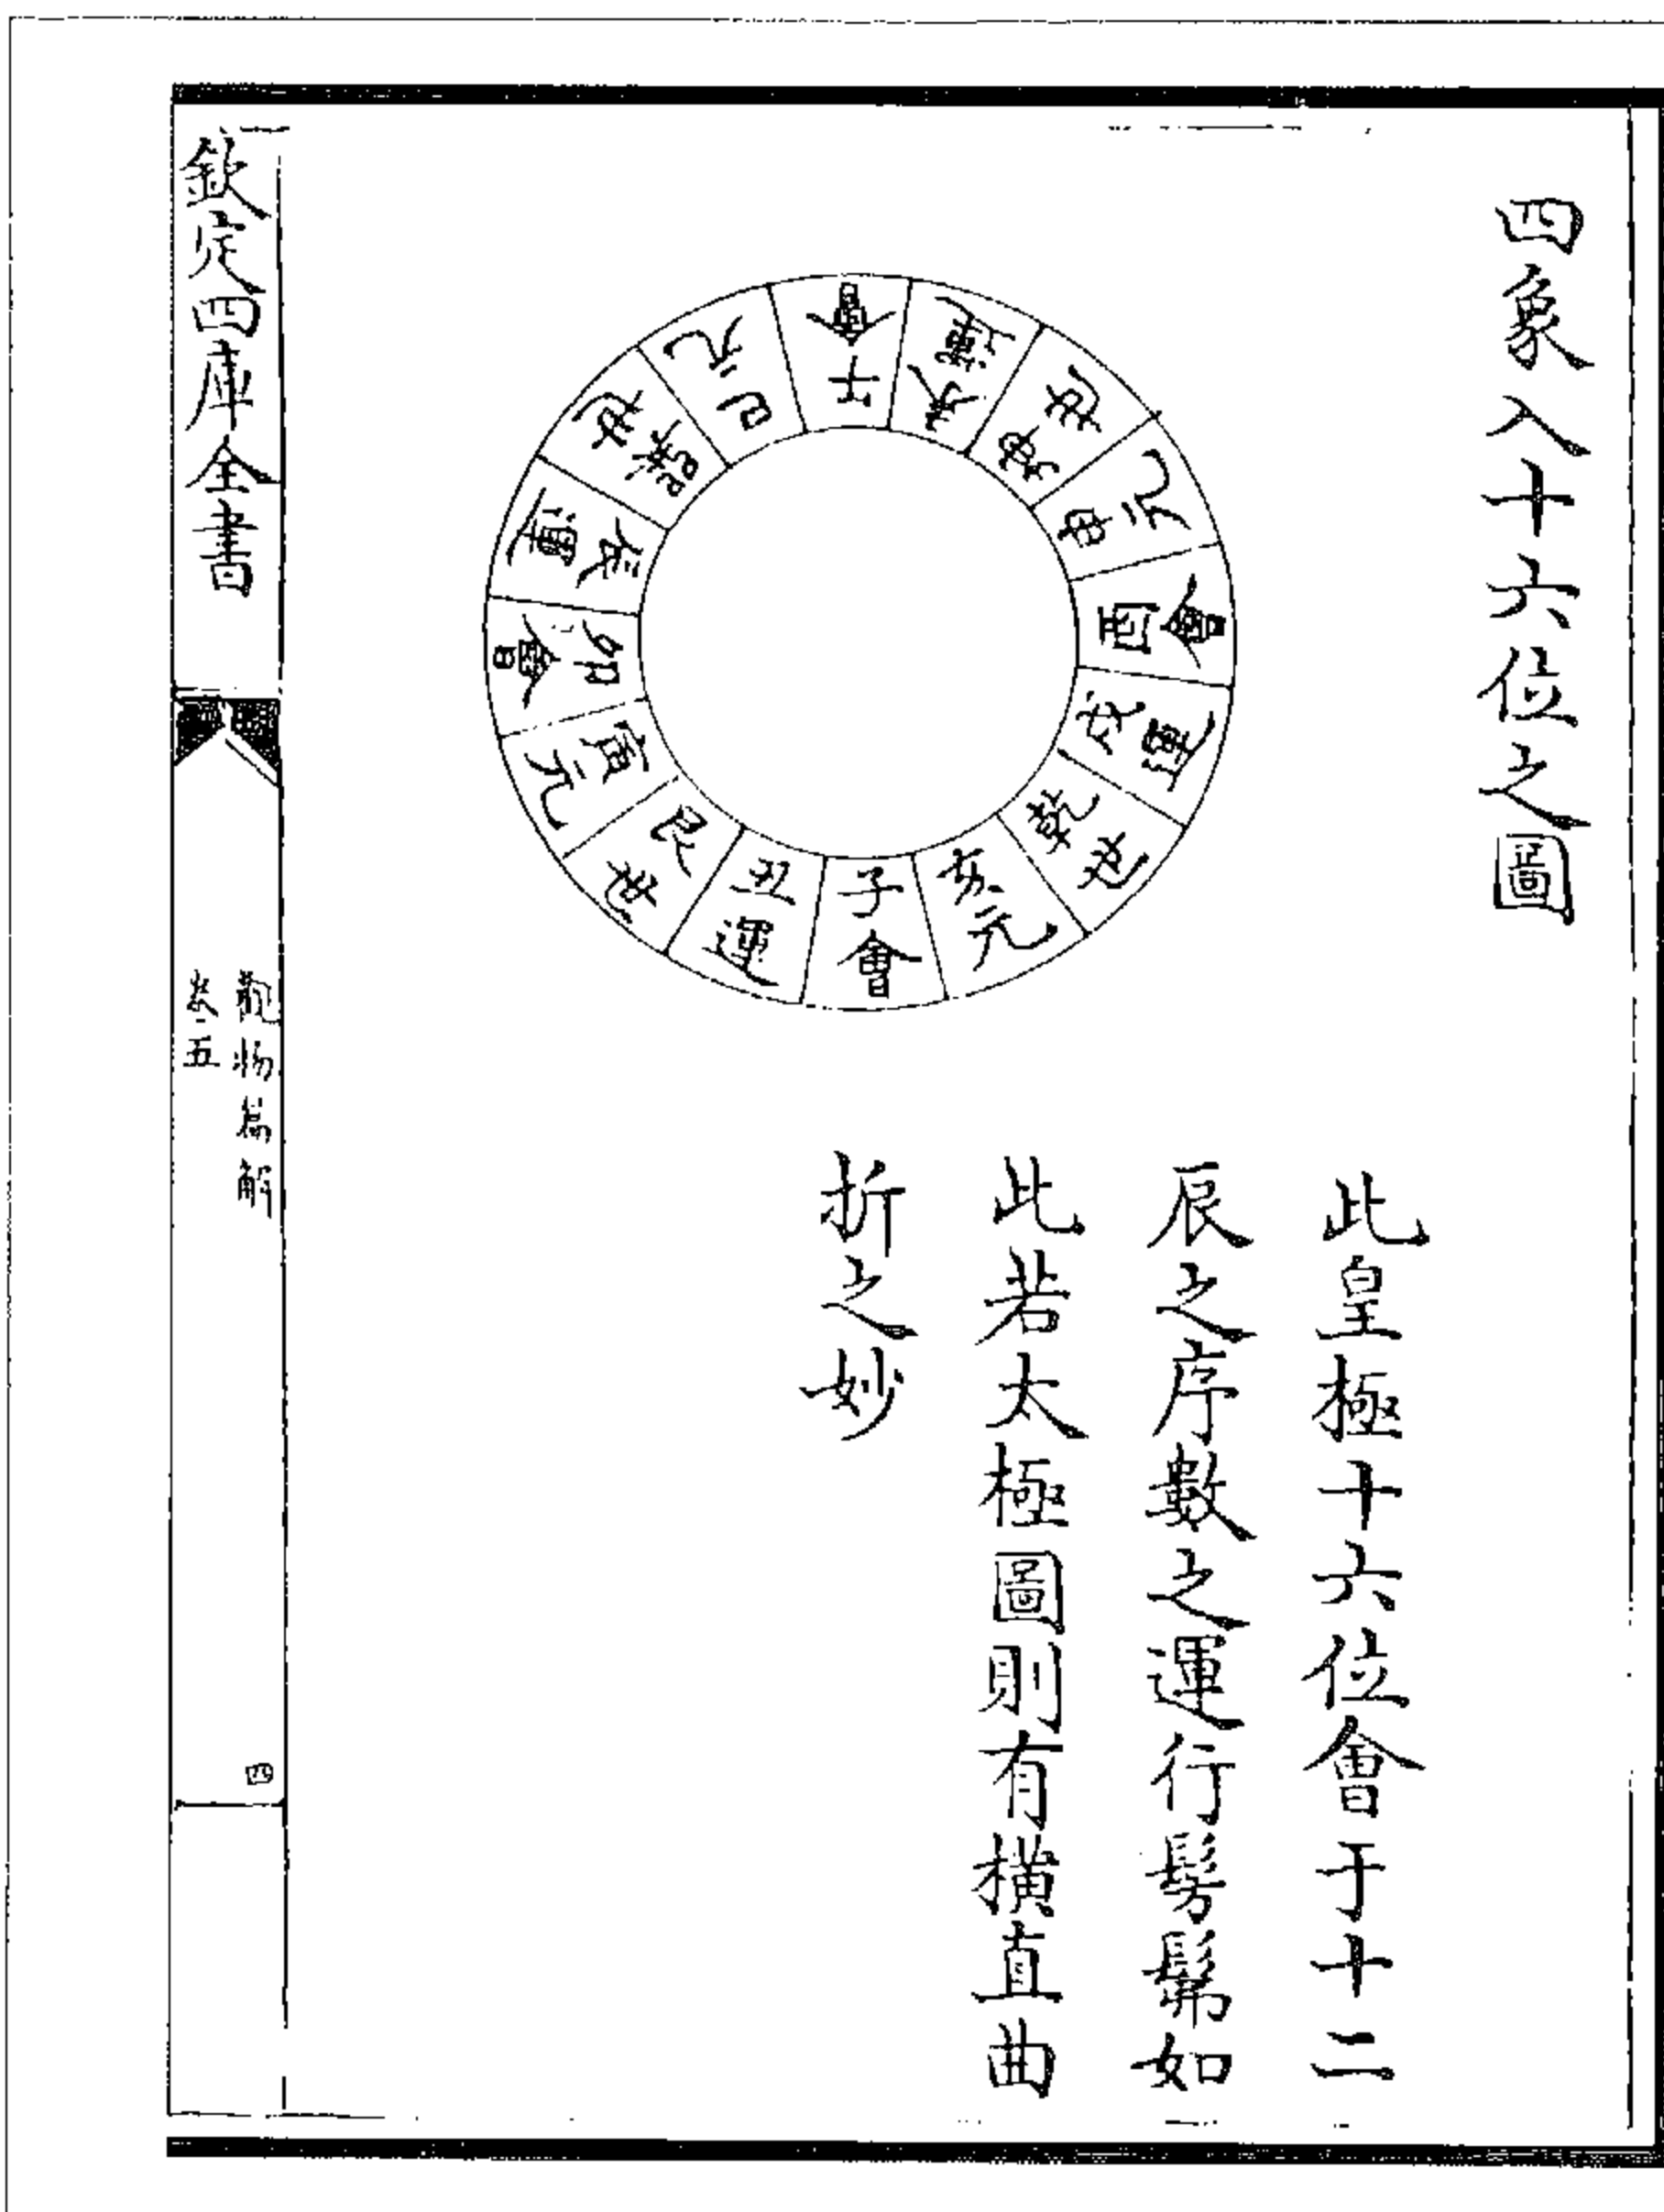 四象入十六位之圖
子會
丑運
艮世
寅元
卯會
辰運
巽世
巳元
午會
未運
坤世
申元
酉會
戌運
乾世
亥元
此皇極十六位會于十二
辰之序數之運行髣髴如
此若太極圖則有橫直曲
折之妙
欽定四庫全書
觀物篇解
卷五
四